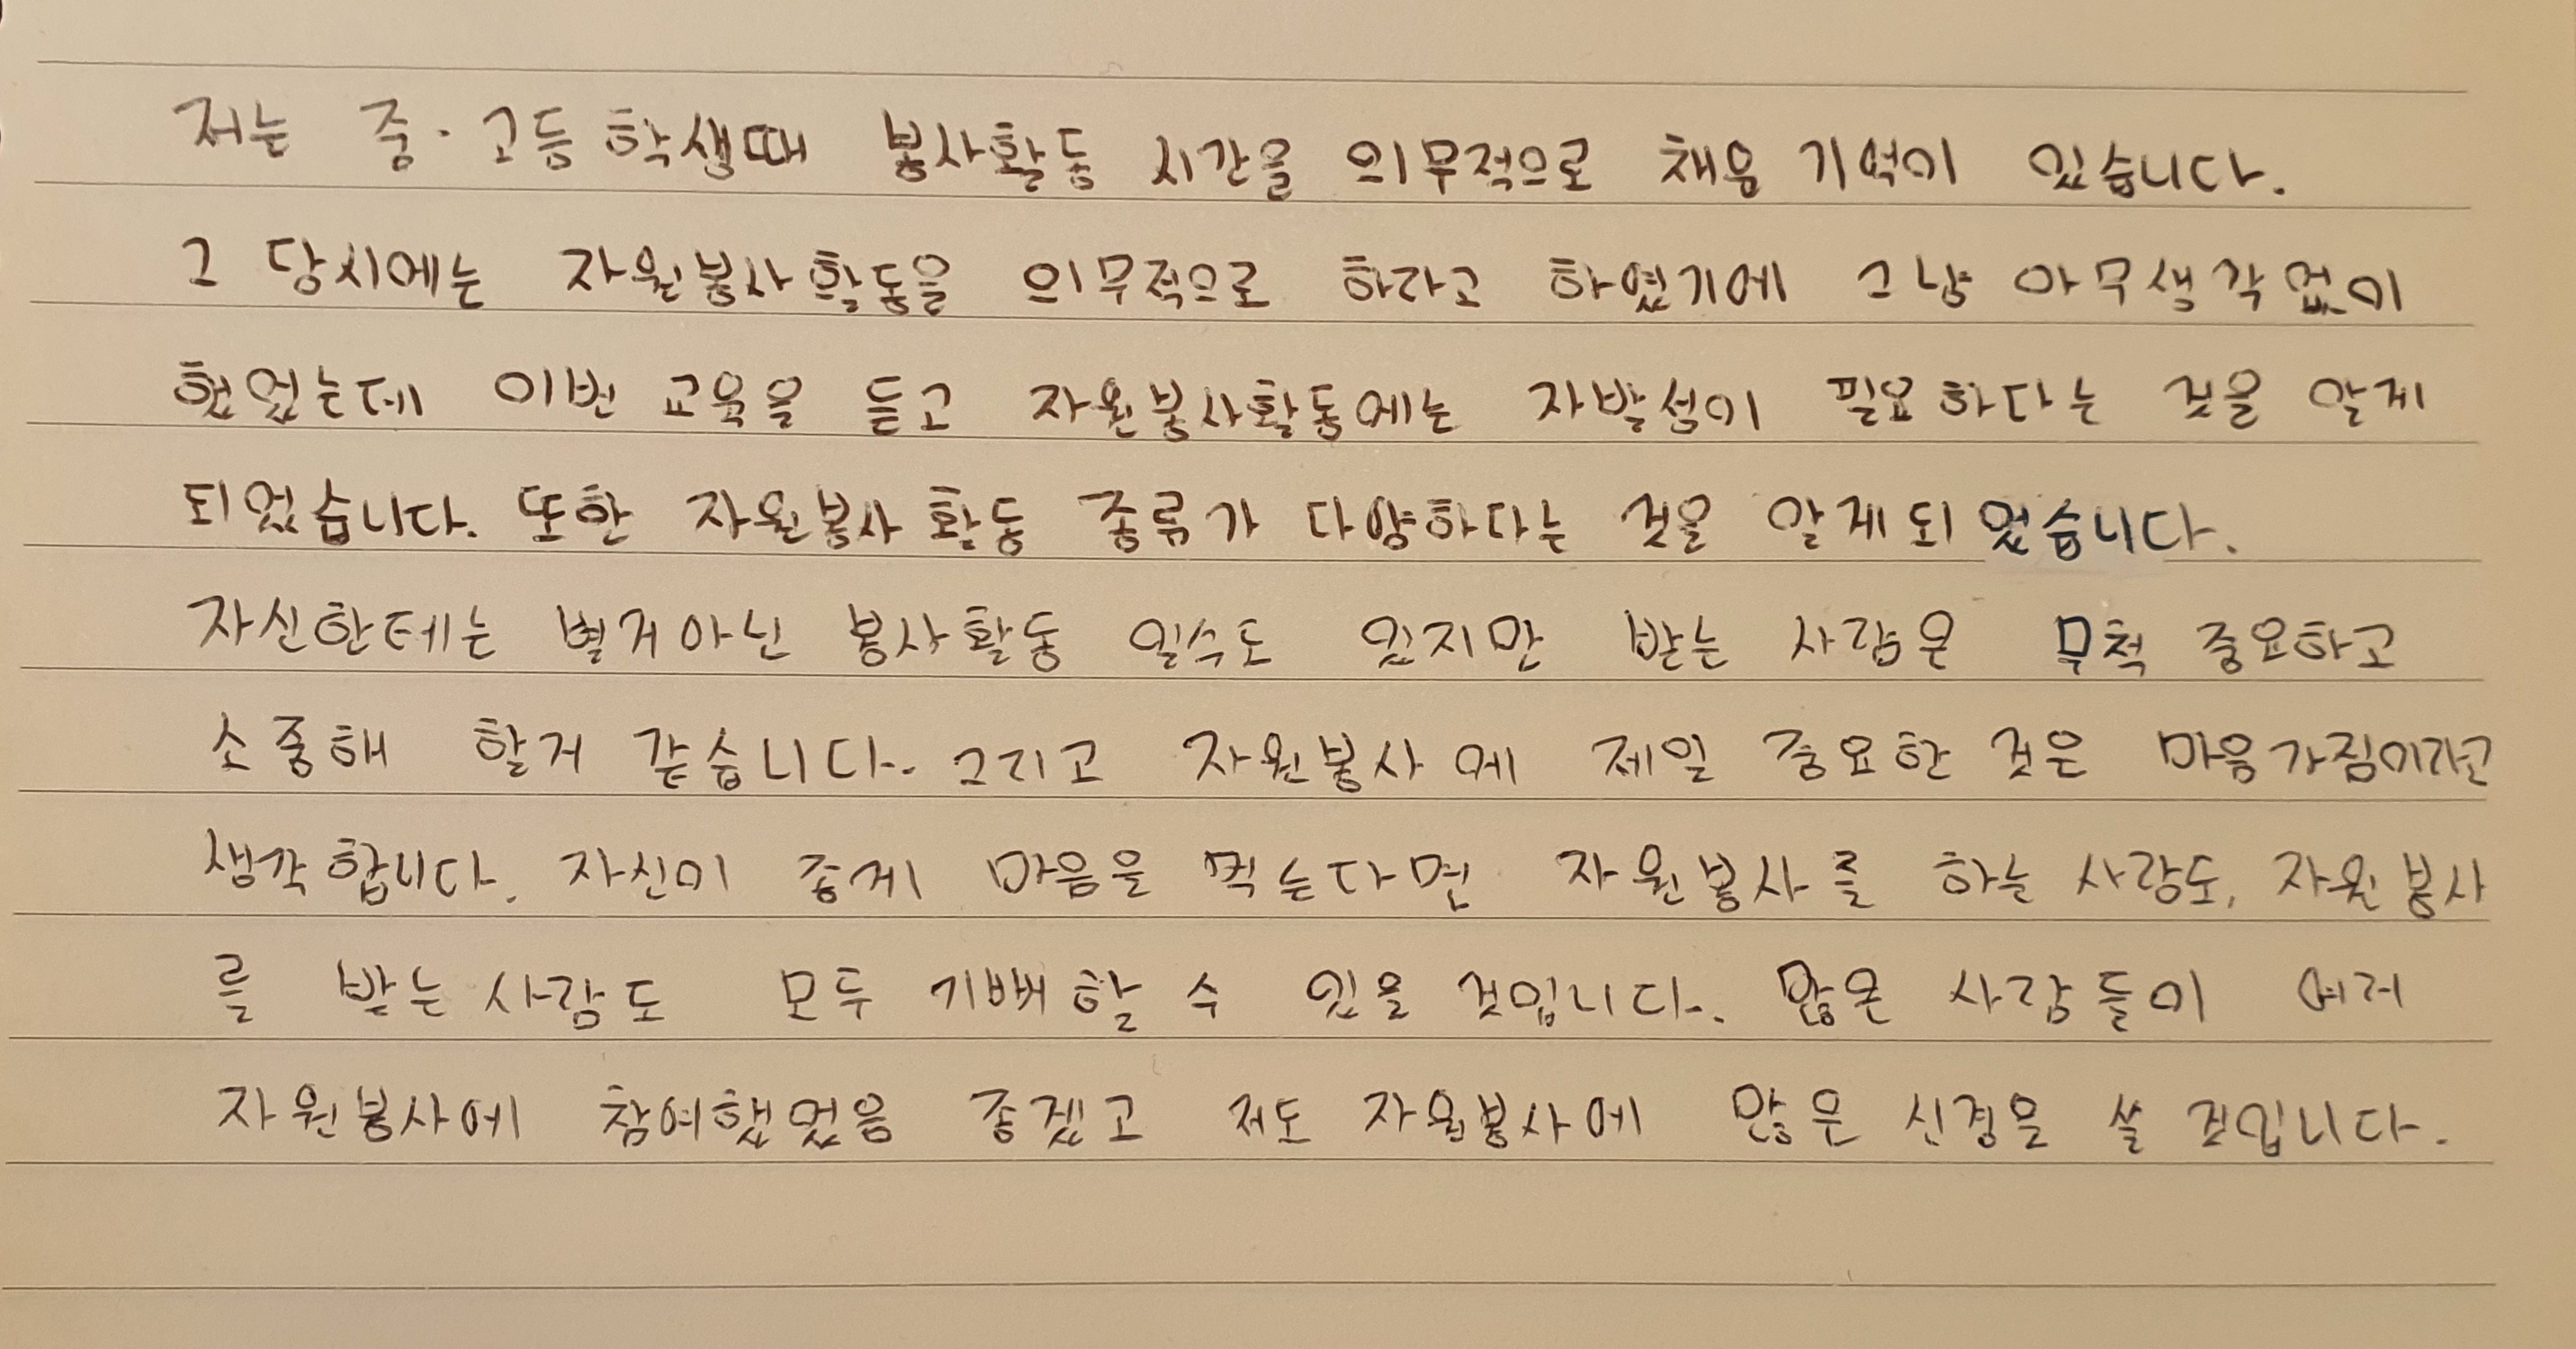 저는 중·고등학생때 봉사활동 시간을 의무적으로 채움 기억이 있습니다.
그 당시에는 자원봉사활동을 의무적으로 하라고 하였기에 그냥 아무생각없이
했었는데 이번 교육을 듣고 자원봉사활동에는 자발성이 필요하다는 것을 알게
되었습니다. 또한 자원봉사활동 종류가 다양하다는 것을 알게되었습니다.
자신한테는 별거아닌 봉사활동 일수도 있지만 받는 사람은 무척 중요하고
소중해 할거 같습니다. 그리고 자원봉사에 제일 중요한 것은 마음가짐이라고
생각합니다. 자신이 좋게 마음을 먹는다면 자원봉사를 하는 사람도, 자원봉사
를 받는 사람도 모두 기뻐할 수 있을 것입니다. 많은 사람들이 여러
자원봉사에 참여했었음 좋겠고 저도 자원봉사에 많은 신경을 쓸 것입니다.